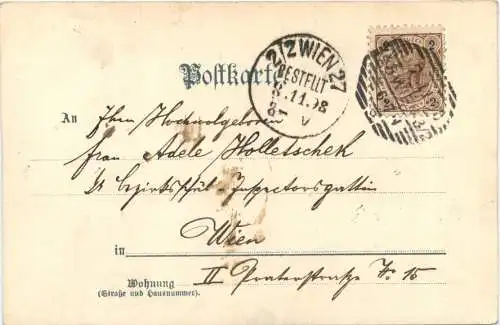 Postkarte
2/2 WIEN 27
BESTELLT
An Ihre Hochwolgeboren
Frau Adele Holletschek
Bezirksschul-Inspectorsgattin
Wien
in
Wohnung
(Straße und Hausnummer).
II Praterstraße Nr 15